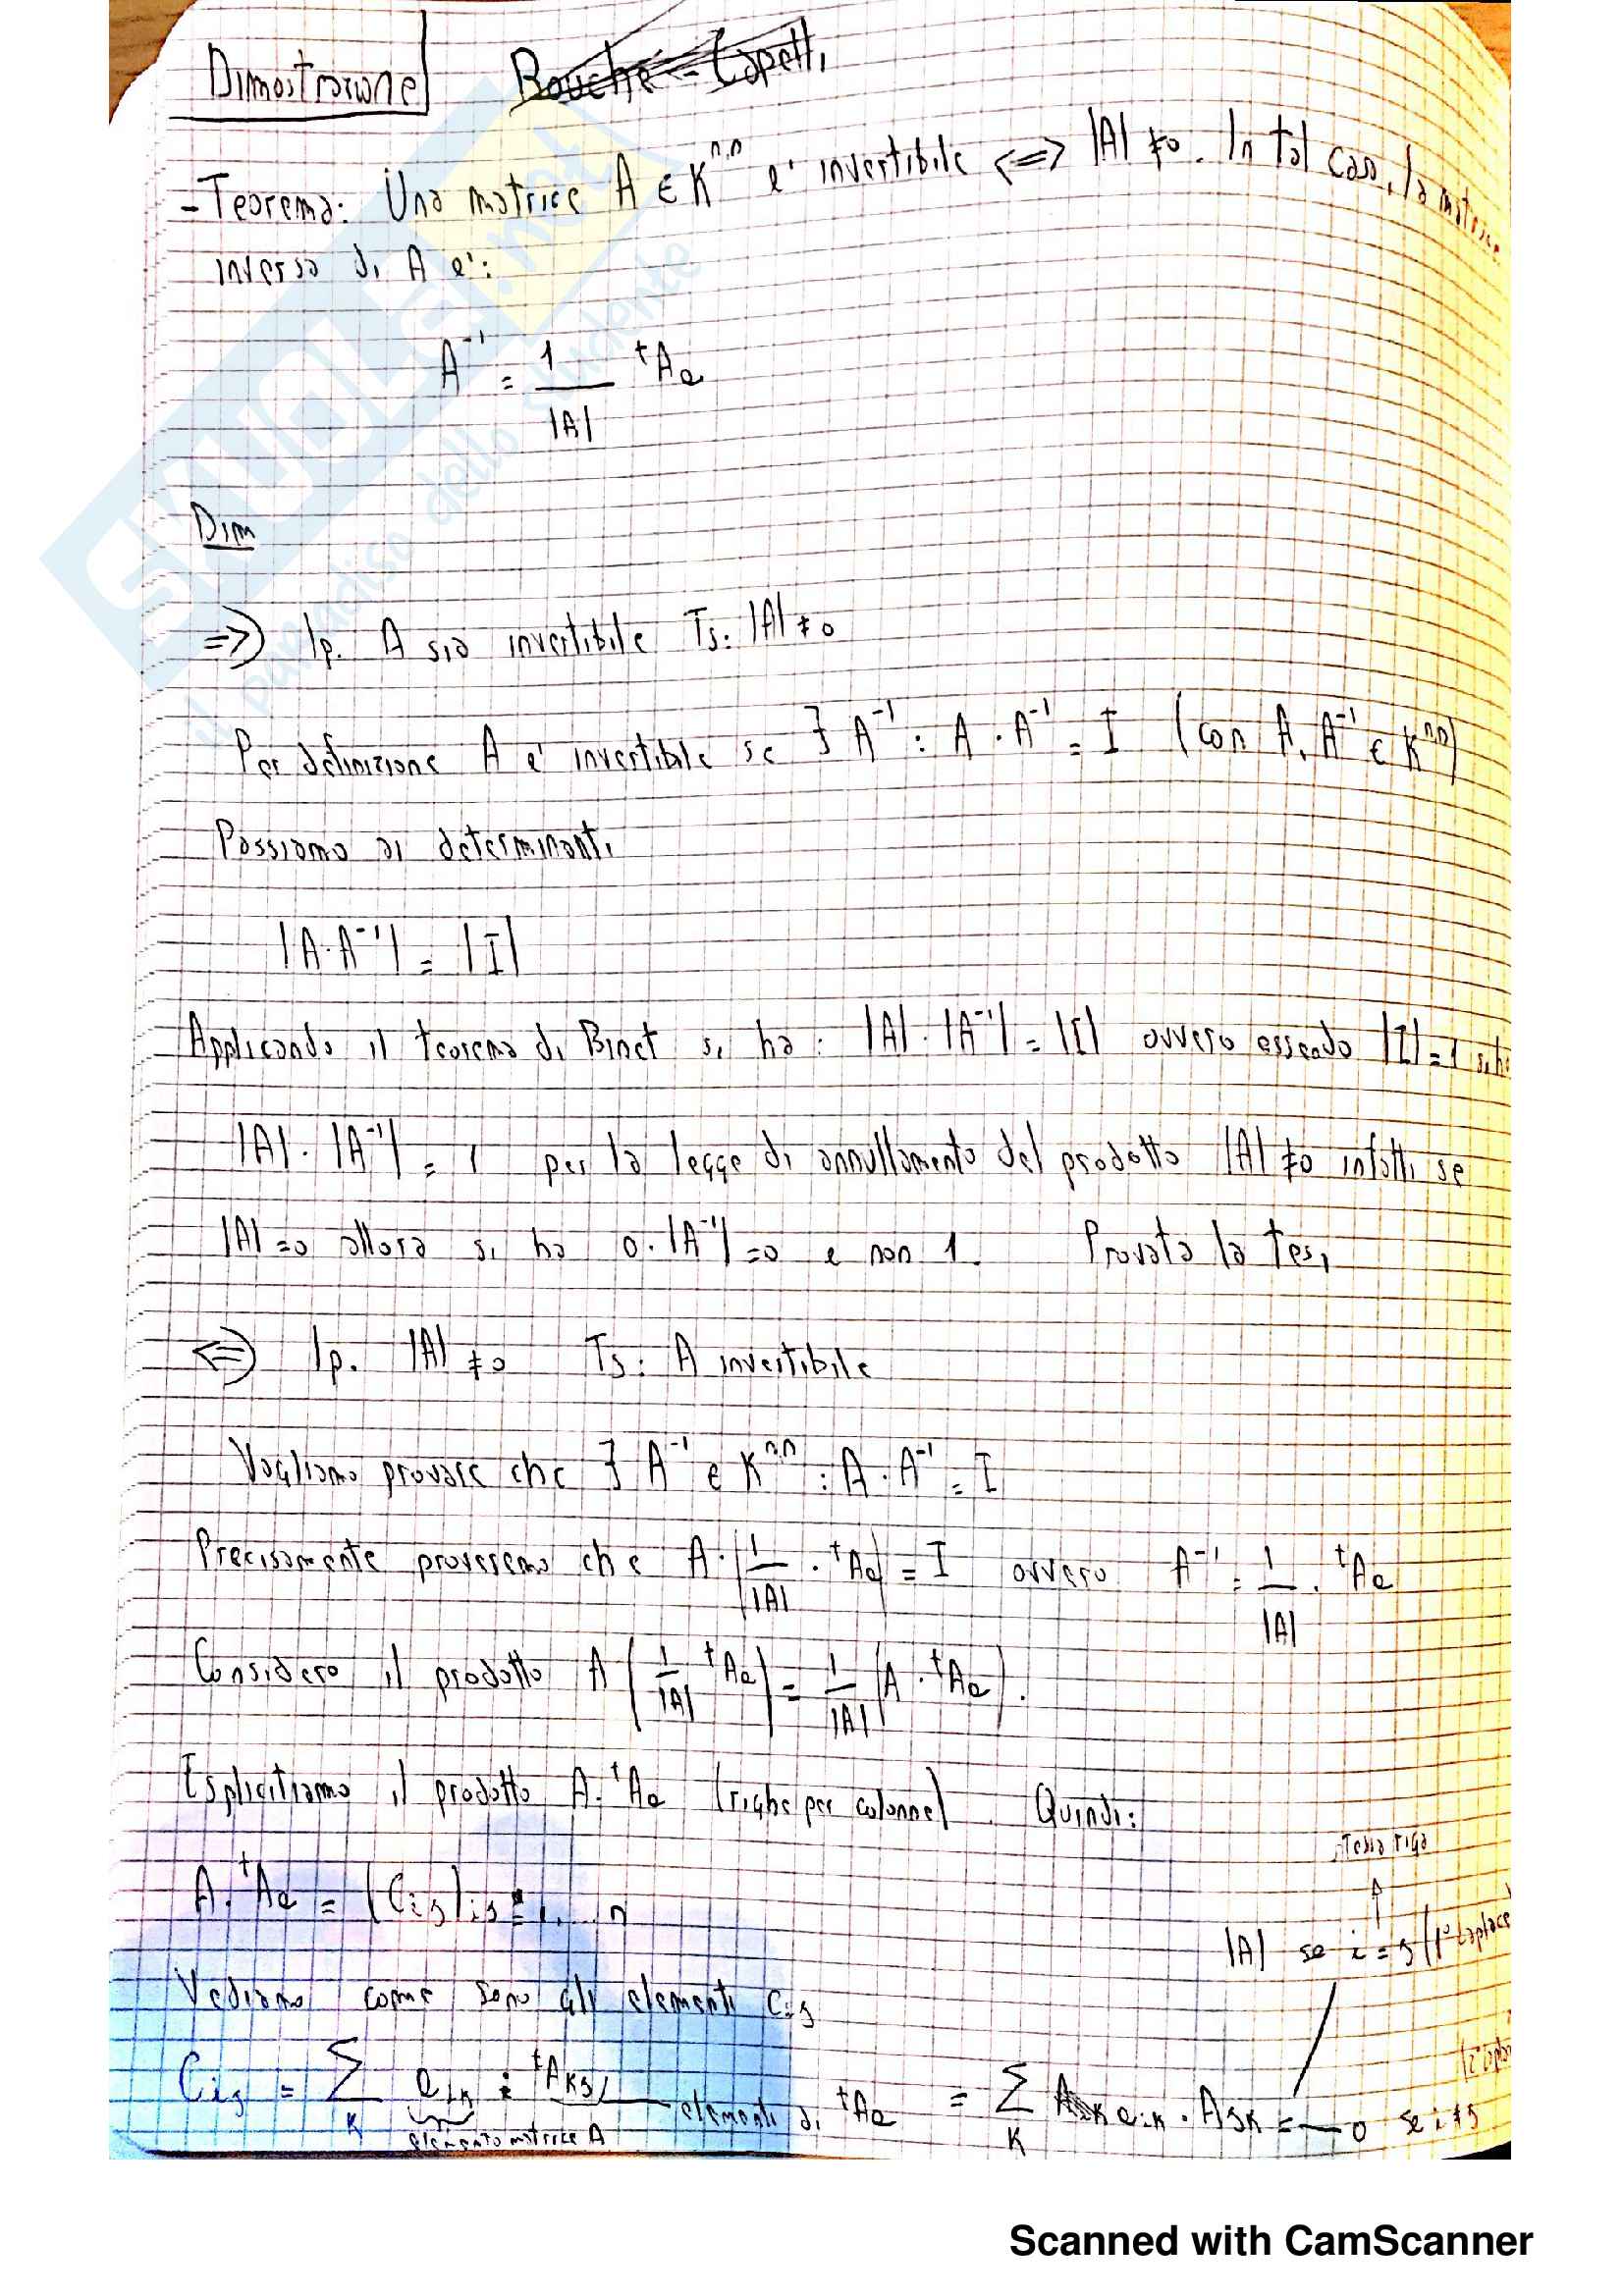 Dimostrazione Bouché-Capelli
- Teorema: Una matrice A ∈ K^n,n e' invertibile <=> |A| ≠ 0. In tal caso, la matrice
inversa di A e':
A^-1 = 1/|A| ^tA_a
Dim
=>) Ip. A sia invertibile Ts: |A| ≠ 0
Per definizione A e' invertibile se ∃ A^-1 : A · A^-1 = I (con A, A^-1 ∈ K^n,n)
Passiamo ai determinanti
|A·A^-1| = |I|
Applicando il teorema di Binet si ha: |A| · |A^-1| = |I| ovvero essendo |I| = 1 si ha
|A| · |A^-1| = 1 per la legge di annullamento del prodotto |A| ≠ 0 infatti se
|A| = 0 allora si ha 0 · |A^-1| = 0 e non 1. Provata la tesi
<=) Ip. |A| ≠ 0 Ts: A invertibile
Vogliamo provare che ∃ A^-1 ∈ K^n,n : A · A^-1 = I
Precisamente proveremo che A · (1/|A| · ^tA_a) = I ovvero A^-1 = 1/|A| · ^tA_a
Considero il prodotto A (1/|A| ^tA_a) = 1/|A| (A · ^tA_a).
Esplicitiamo il prodotto A · ^tA_a (righe per colonne). Quindi:
stessa riga
A · ^tA_a = (C_ij)_ij = 1,...n
|A| se i = j (1° Laplace
Vediamo come sono gli elementi C_ij
C_ij = Σ_K a_iK · ^tA_Kj elementi di ^tA_a = Σ_K a_iK · A_jK = 0 se i ≠ j
elemento matrice A
SKUOLA.net
il paradiso dello studente
Scanned with CamScanner